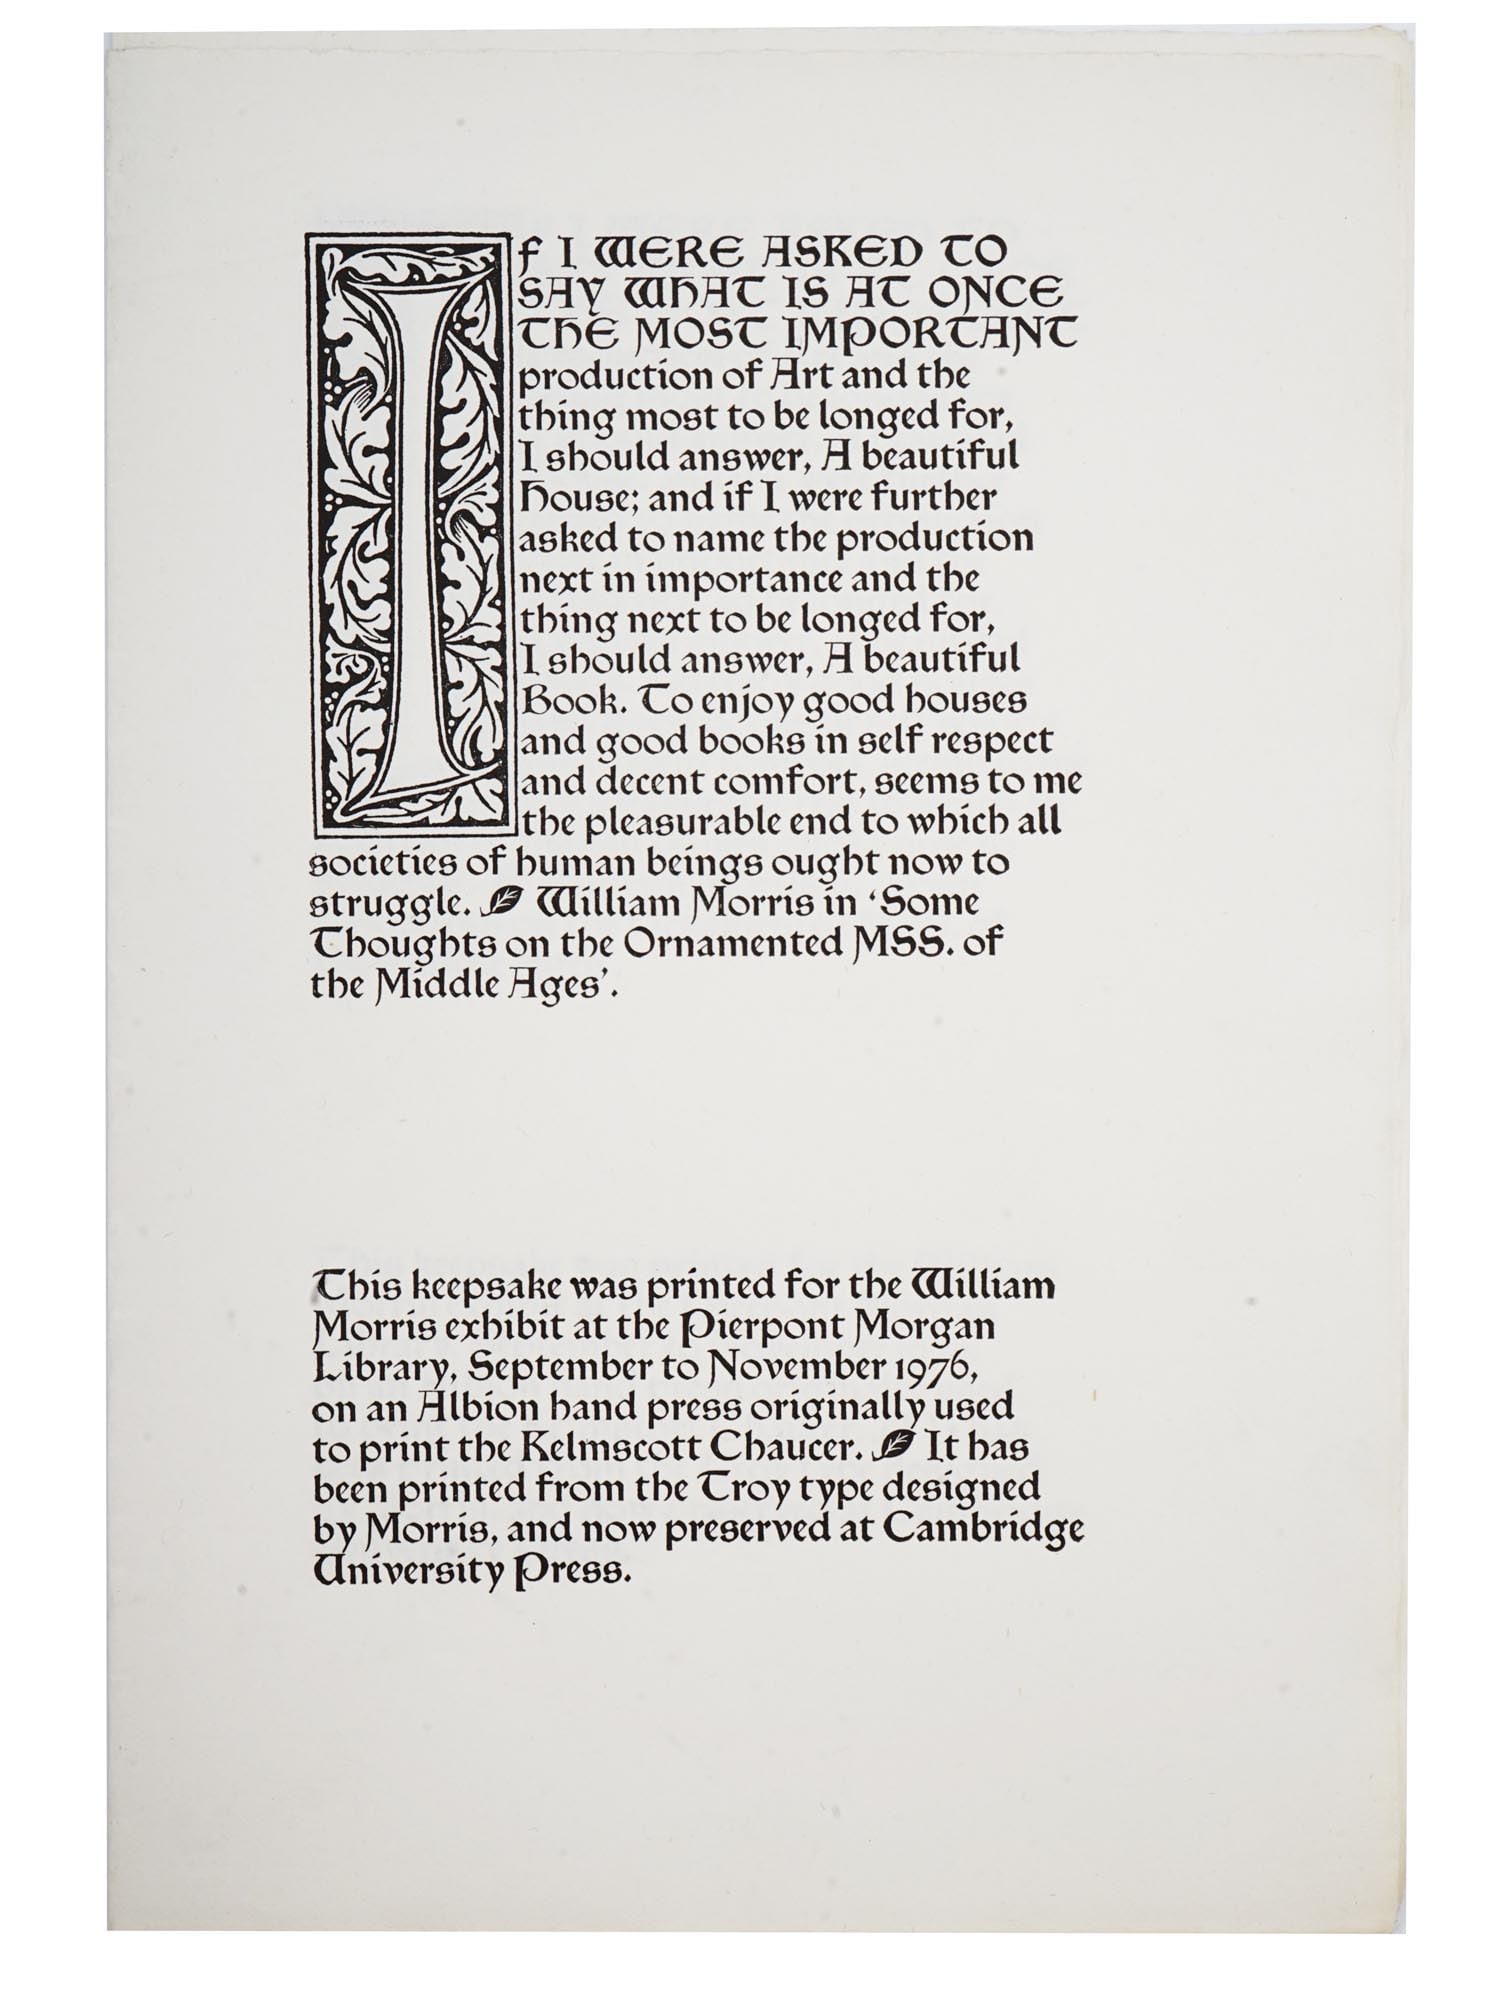 If I WERE ASKED TO
SAY WHAT IS AT ONCE
THE MOST IMPORTANT
production of Art and the
thing most to be longed for,
I should answer, A beautiful
House; and if I were further
asked to name the production
next in importance and the
thing next to be longed for,
I should answer, A beautiful
Book. To enjoy good houses
and good books in self respect
and decent comfort, seems to me
the pleasurable end to which all
societies of human beings ought now to
struggle. ❧ William Morris in ‘Some
Thoughts on the Ornamented MSS. of
the Middle Ages’.
This keepsake was printed for the William
Morris exhibit at the Pierpont Morgan
Library, September to November 1976,
on an Albion hand press originally used
to print the Kelmscott Chaucer. ❧ It has
been printed from the Troy type designed
by Morris, and now preserved at Cambridge
University Press.